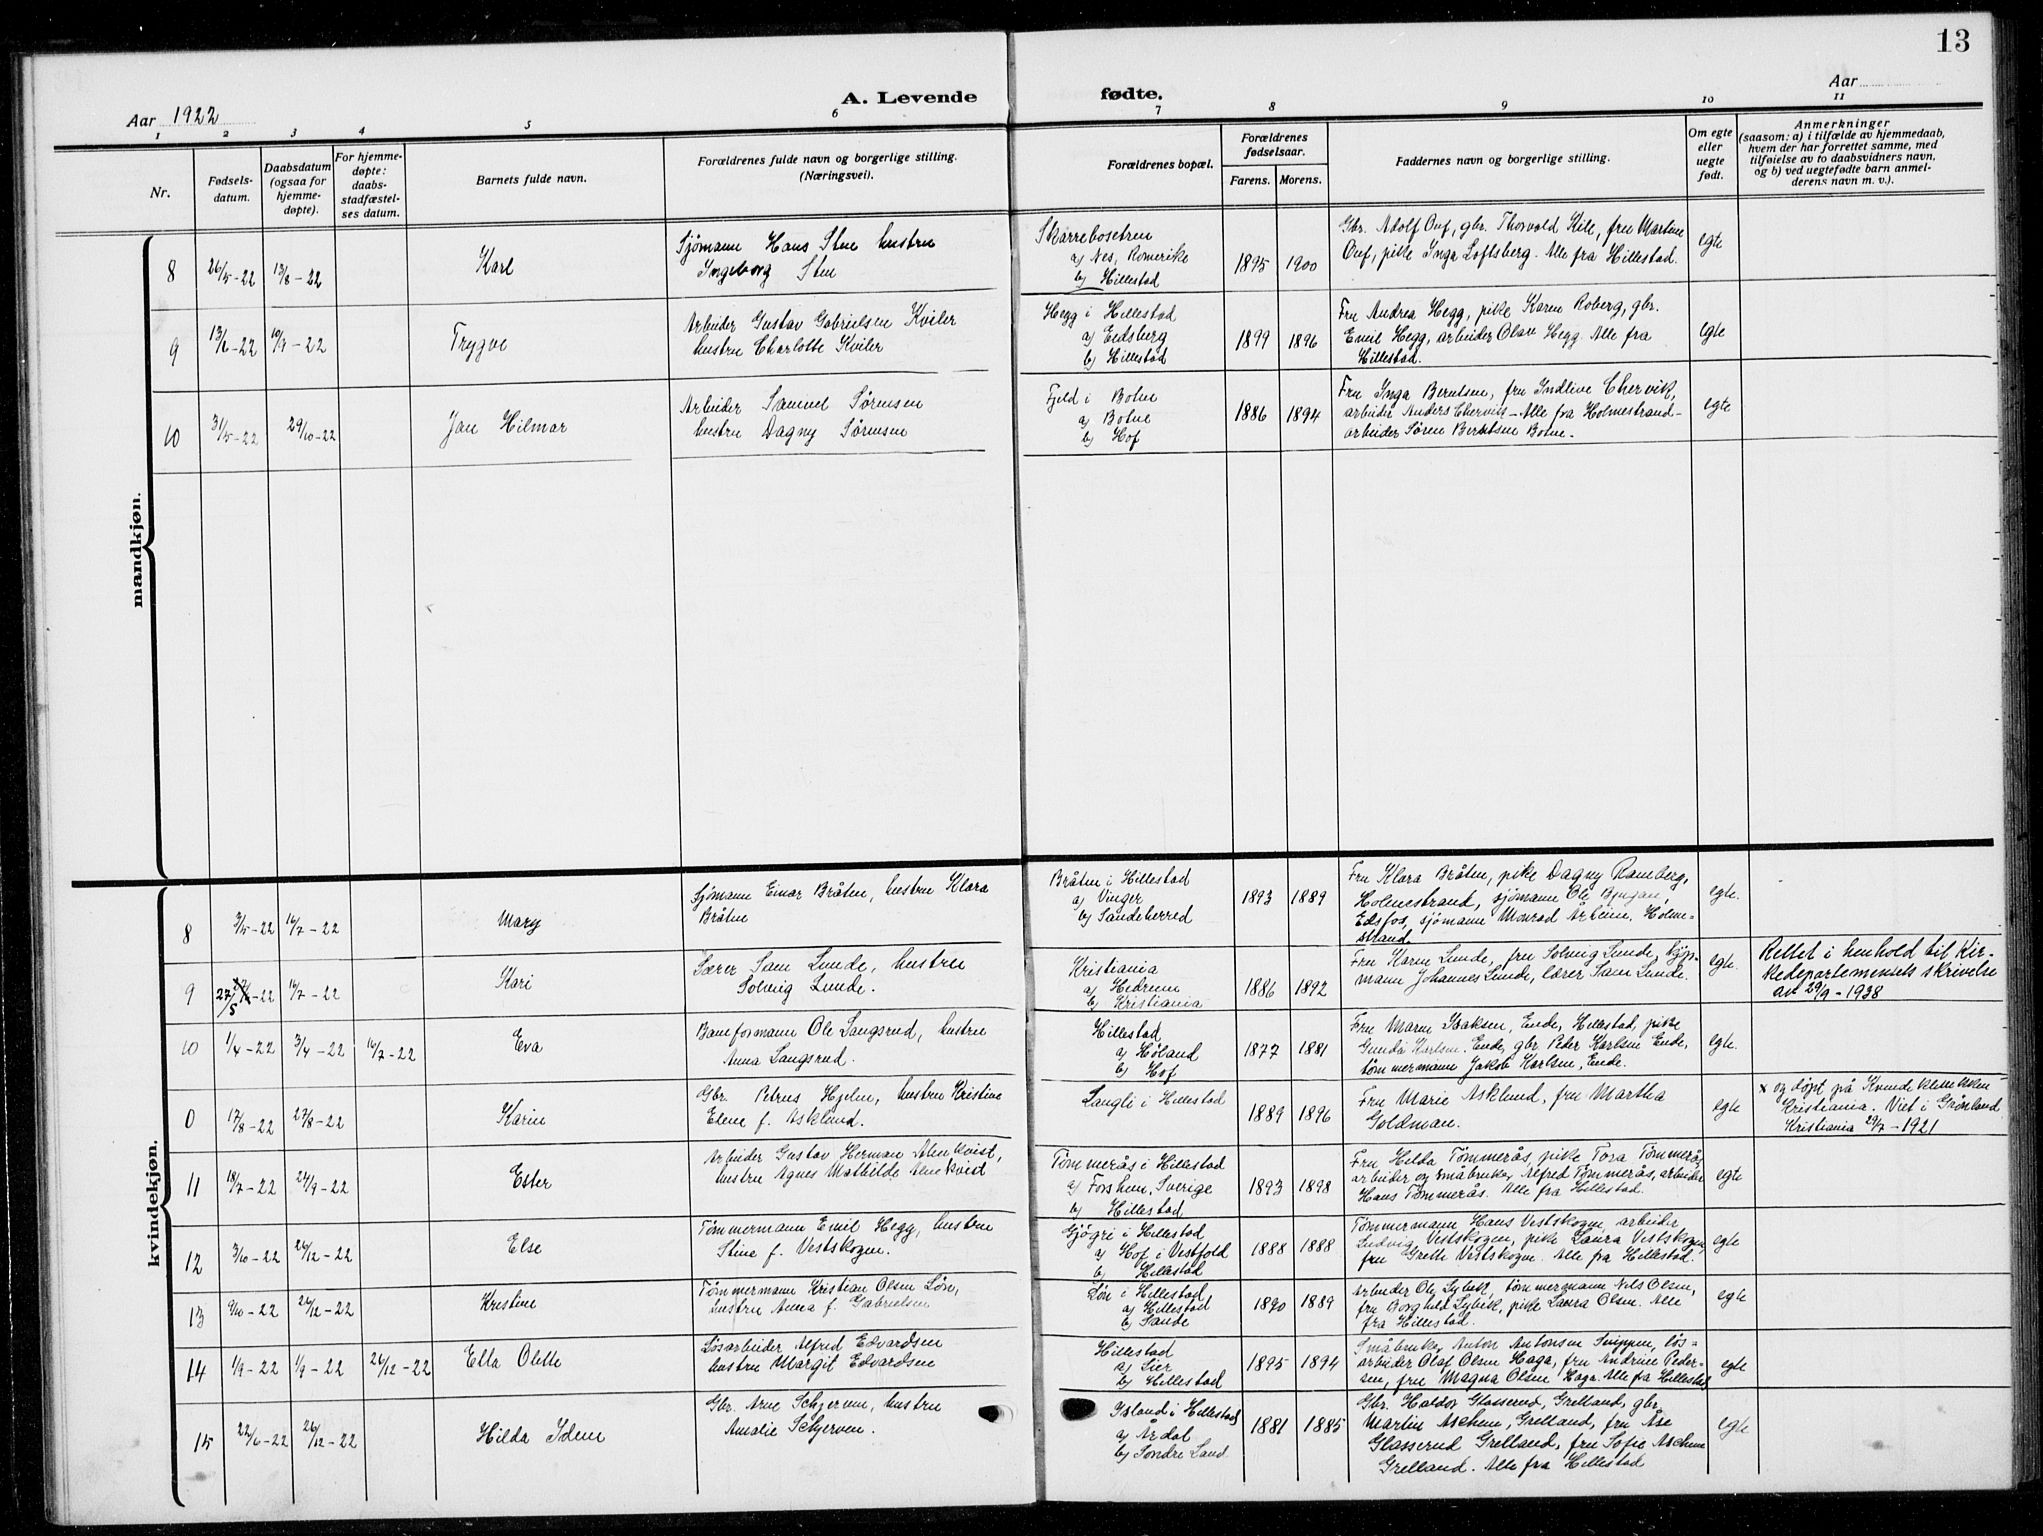 13
Aar 1922
A. Levende
fødte.
Aar
1 2 3 4 5 6 7 8 9 10 11
Nr.
Fødsels-
datum.
Daabsdatum
(ogsaa for
hjemme-
døpte).
For hjemme-
døpte:
daabs-
stadfæstel-
ses datum.
Barnets fulde navn.
Forældrenes fulde navn og borgerlige stilling.
(Næringsvei).
Forældrenes bopæl.
Forældrenes
fødselsaar.
Farens. Morens.
Faddernes navn og borgerlige stilling.
Om egte
eller
uegte
født.
Anmerkninger
(saasom: a) i tilfælde av hjemmedaab,
hvem der har forrettet samme, med
tilføielse av to daabsvidners navn,
og b) ved uegtefødte barn anmel-
derens navn m. v.).
mandkjøn.
8 26/5-22 13/8-22 Karl
Sjømann Hans Sten hustru
Ingeborg Sten
Skarrebosetren
a) Nes, Romerike
b) Hillestad
1895 1900
Gbr. Adolf Ouf, gbr. Thorvald Kile, fru Martine
Ouf, pike Inga Loftsberg. Alle fra Hillestad.
egte
9 13/6-22 10/9-22 Trygve
Arbeider Gustav Gabrielsen Kviler
hustru Charlotte Kviler
Hegg i Hillestad
a) Eidsberg
b) Hillestad
1899 1896
Fru Andrea Hegg, pike Karen Roberg, gbr.
Emil Hegg, arbeider Olav Hegg. Alle fra
Hillestad.
egte
10 31/5-22 29/10-22 Jan Hilmar
Arbeider Samuel Sørensen
hustru Dagny Sørensen
Fjeld i Botne
a) Botne
b) Hof
1886 1894
Fru Inga Berntsen, fru Indlive Chervik,
arbeider Anders Chervik - Alle fra Holmestrand-
arbeider Søren Berntsen Botne.
egte
kvindekjøn.
8 3/5-22 16/7-22 Mary
Sjømann Einar Bråten, hustru Klara
Bråten
Bråten i Hillestad
a) Vinger
b) Sandeherred
1893 1889
Fru Klara Bråten, pike Dagny Ramberg,
Holmestrand, sjømann Ole Bjugan,
Edsfos, sjømann Monrad Holme-
strand.
egte.
9 27/5-22 16/7-22 Kari
Lærer Sam Lunde, hustru
Solveig Lunde.
Kristiania
a) Hedrum
b) Kristiania
1886 1892
Fru Karen Lunde, fru Solveig Lunde,
mann Johannes Lunde, lærer Sam Lunde.
egte.
Rettet i henhold til Kir-
kedepartementets skrivelse
av 29/9-1938
10 1/4-22 3/4-22 16/7-22 Eva
Baneformann Ole Langsrud, hustru
Anna Langsrud.
Hillestad
a) Høland
b) Hof
1877 1881
Fru Maren Isaksen, Ende, Hillestad, pike
Gunda Karlsen, Ende, gbr Peder Karlsen Ende,
tømmermann Jakob Karlsen, Ende.
egte.
0 17/8-22 27/8-22 Karin
Gbr. Petrus Hjelm, hustru Kristine
Elene f. Asklund.
Langli i Hillestad
1889 1896
Fru Marie Asklund, fru Martha
Goldman.
egte
x og døpt på Kvindeklinikken
Kristiania. Viet i Grønland
Kristiania 29/7-1921
11 18/7-22 24/9-22 Ester
Arbeider Gustav Herman Almkvist,
hustru Agnes Mathilde Almkvist
Tømmerås i Hillestad
a) Forshem, Sverige
b) Hillestad
1893 1898
Fru Hilda Tømmerås, pike Tora Tømmerås,
arbeider og småbruker Alfred Tømmerås, arbeider
Hans Tømmerås. Alle fra Hillestad.
egte
12 3/10-22 26/12-22 Else
Tømmermann Emil Hegg, hustru
Stine f. Vestskogen.
Gjøgri i Hillestad
a) Hof i Vestfold
b) Hillestad
1888 1888
Tømmermann Hans Vestskogen, arbeider
Ludvig Vestskogen, pike Laura Vestskogen,
fru Grethe Vestskogen. Alle fra Hillestad.
egte
13 9/10-22 26/12-22 Kristine
Tømmermann Kristian Olsen Løn,
hustru Anna f. Gabrielsen
Løn i Hillestad
a) Hillestad
b) Sande
1890 1889
Arbeider Ole Lybek, tømmermann Nils Olsen,
fru Borghild Lybek, pike Laura Olsen. Alle
fra Hillestad.
egte
14 1/9-22 1/9-22 26/12-22 Ella Olette
Løsarbeider Alfred Edvardsen
hustru Margit Edvardsen
Hillestad
a) Lier
b) Hillestad
1895 1894
Småbruker Anton Antonsen Snippen, løs-
arbeider Olaf Olsen Haga, fru Andrine Peder-
sen, fru Magna Olsen Haga. Alle fra Hillestad
egte
15 22/6-22 26/12-22 Hilda Idem
Gbr. Arne Schjerven, hustru
Amalie Schjerven.
Island i Hillestad
a) Årdal
b) Søndre Land
1881 1885
Gbr. Haldor Glasserud, Grelland, gbr.
Martin Aschem, Grelland, fru Åse
Glasserud Grelland, fru Sofie Aschem
Grelland. Alle fra Hillestad
egte